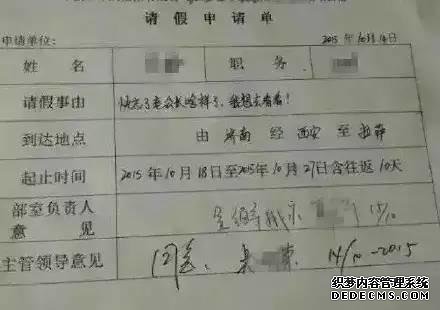 请假申请单
申请单位: 2015年10月14日
姓名 职务
请假事由 快忘了老公长啥样了，我想去看看！
到达地点 由 济南 经 西安 至 拉萨
起止时间 2015年10月18日至2015年10月27日含往返10天
部室负责人 15/10
意见
主管领导意见 同意、 14/10-2015
织梦内容管理系统
DEDECMS.COM